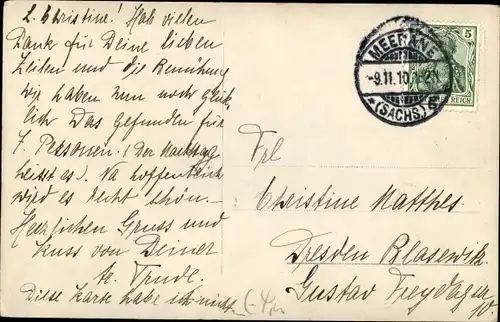 L. Christine! Hab vielen
Dank für Deine lieben
Zeilen und die Bemühung
Wir haben nun noch glück-
lich Das gefunden für
7. Personen. (Der
heisst es). Na hoffentlich
wird es recht schön. -
Herzlichen Gruss und
Kuss von Deiner
Trude.
Diese Karte habe ich nicht
MEERANE
-9.11.10
*(SACHS)*
5
REICH
Frl
Christine Matthes.
Dresden Blasewitz.
Gustav Freytag